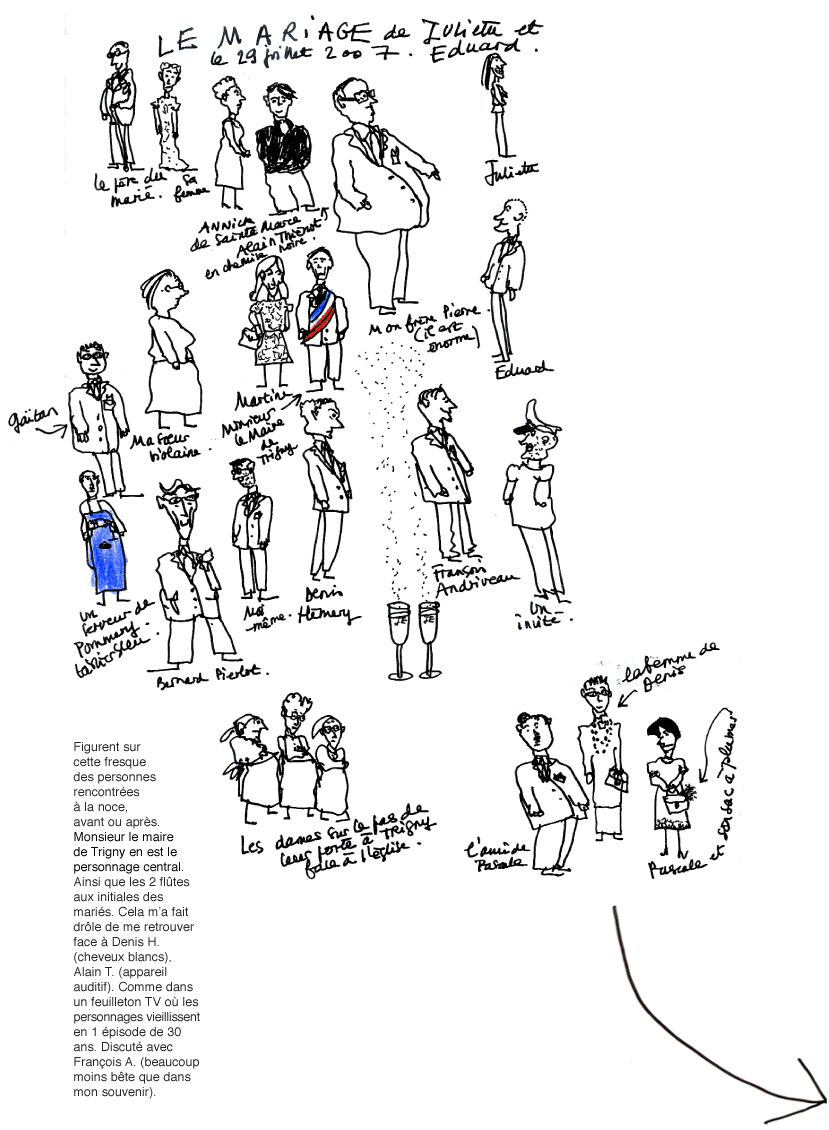 LE MARiAGE de Juliette et
le 29 juillet 2007. Eduard.
le père du
marié.
sa
femme
Juliette
ANNick
de Sainte Marie
Alain Thienot
en chemise noire.
Mon frère Pierre.
(il est
énorme)
Eduard
Gaëtan
Ma sœur
Violaine.
Martine
Monsieur
le Maire
de
Trigny
Un
serveur de
Pommery.
tablier bleu.
Bernard Pierlot.
Moi
même.
Denis
Hémery
François
Andriveau
Un
invité.
JE
JE
la femme de
Denis
Les dames sur le pas de
leur porte à Trigny
face à l'église.
l'ami de
Pascale
Pascale et son sac à plumes
Figurent sur
cette fresque
des personnes
rencontrées
à la noce,
avant ou après.
Monsieur le maire
de Trigny en est le
personnage central.
Ainsi que les 2 flûtes
aux initiales des
mariés. Cela m'a fait
drôle de me retrouver
face à Denis H.
(cheveux blancs),
Alain T. (appareil
auditif). Comme dans
un feuilleton TV où les
personnages vieillissent
en 1 épisode de 30
ans. Discuté avec
François A. (beaucoup
moins bête que dans
mon souvenir).